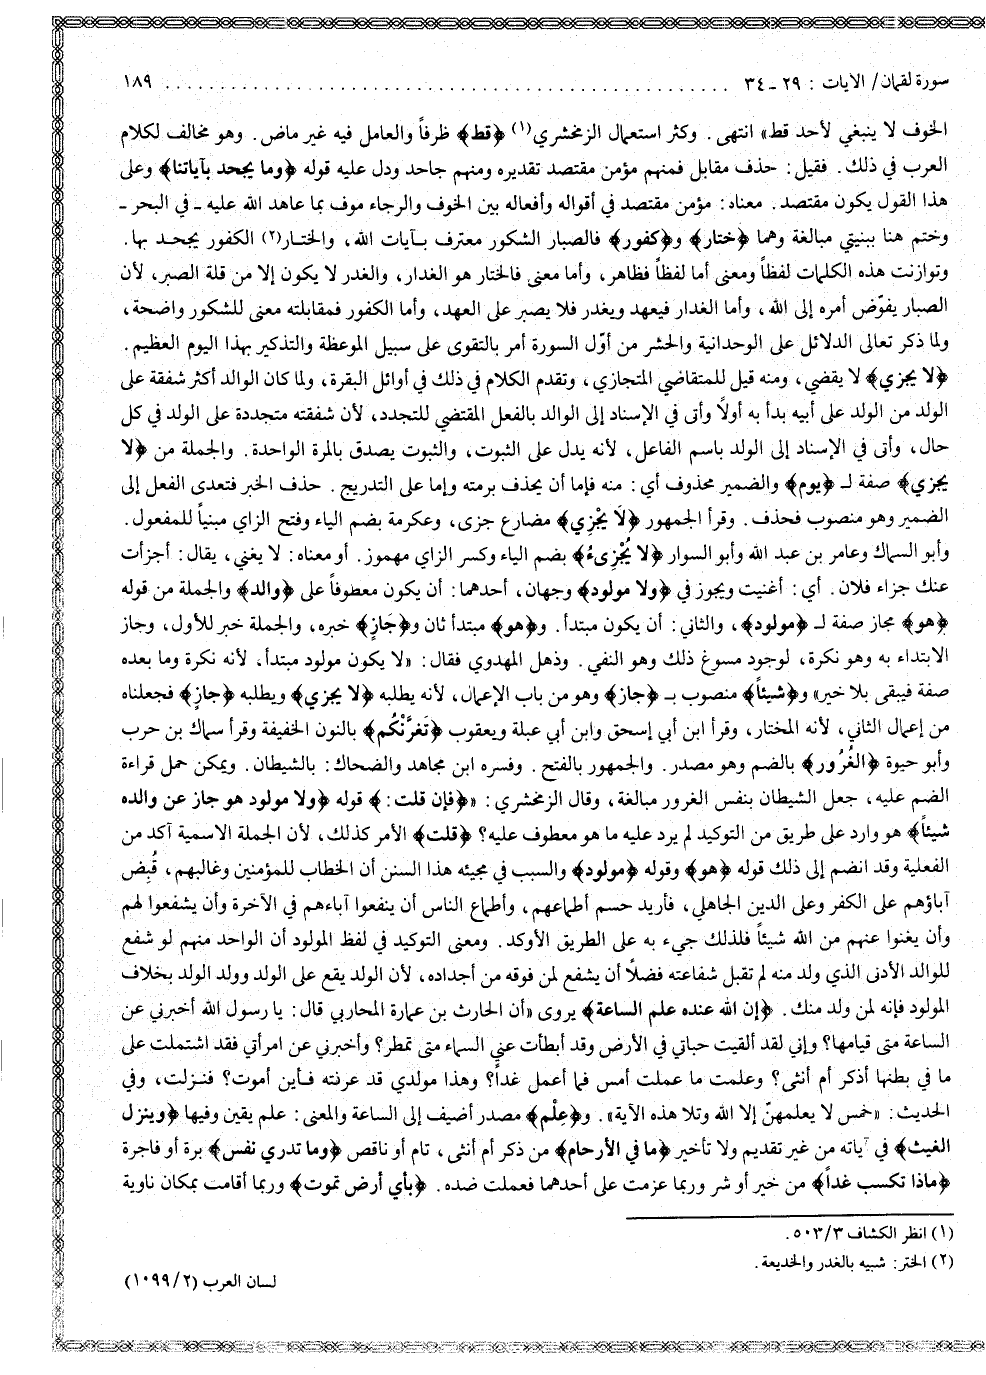 سورة لقمان/ الايات : ٢٩ ـ ٣٤ ................................................ ١٨٩
الخوف لا ينبغي لأحد قط» انتهى. وكثر استعمال الزمخشري(١) ﴿قط﴾ ظرفاً والعامل فيه غير ماض. وهو مخالف لكلام
العرب في ذلك. فقيل: حذف مقابل فمنهم مؤمن مقتصد تقديره ومنهم جاحد ودل عليه قوله ﴿وما يجحد بآياتنا﴾ وعلى
هذا القول يكون مقتصد. معناه: مؤمن مقتصد في أقواله وأفعاله بين الخوف والرجاء موف بما عاهد الله عليه ـ في البحر ـ
وختم هنا ببنيتي مبالغة وهما ﴿ختار﴾ و﴿كفور﴾ فالصبار الشكور معترف بآيات الله، والختار(٢) الكفور يجحد بها.
وتوازنت هذه الكلمات لفظاً ومعنى أما لفظاً فظاهر، وأما معنى فالختار هو الغدار، والغدر لا يكون إلا من قلة الصبر، لأن
الصبار يفوّض أمره إلى الله، وأما الغدار فيعهد ويغدر فلا يصبر على العهد، وأما الكفور فمقابلته معنى للشكور واضحة،
ولما ذكر تعالى الدلائل على الوحدانية والحشر من أوّل السورة أمر بالتقوى على سبيل الموعظة والتذكير بهذا اليوم العظيم.
﴿لا يجزي﴾ لا يقضي، ومنه قيل للمتقاضي المتجازي، وتقدم الكلام في ذلك في أوائل البقرة، ولما كان الوالد أكثر شفقة على
الولد من الولد على أبيه بدأ به أولاً وأتى في الإسناد إلى الوالد بالفعل المقتضي للتجدد، لأن شفقته متجددة على الولد في كل
حال، وأتى في الإسناد إلى الولد باسم الفاعل، لأنه يدل على الثبوت، والثبوت يصدق بالمرة الواحدة. والجملة من ﴿لا
يجزي﴾ صفة لـ ﴿يوم﴾ والضمير محذوف أي: منه فإما أن يحذف برمته وإما على التدريج. حذف الخبر فتعدى الفعل إلى
الضمير وهو منصوب فحذف. وقرأ الجمهور ﴿لَا يَجْزِي﴾ مضارع جزى، وعكرمة بضم الياء وفتح الزاي مبنياً للمفعول.
وأبو السماك وعامر بن عبد الله وأبو السوار ﴿لا يُجْزِىءُ﴾ بضم الياء وكسر الزاي مهموز. أو معناه: لا يغني، يقال: أجزأت
عنك جزاء فلان. أي: أغنيت ويجوز في ﴿ولا مولود﴾ وجهان، أحدهما: أن يكون معطوفاً على ﴿والد﴾ والجملة من قوله
﴿هو﴾ مجاز صفة لـ ﴿مولود﴾، والثاني: أن يكون مبتدأ. و﴿هو﴾ مبتدأ ثان و﴿جَازٍ﴾ خبره، والجملة خبر للأول، وجاز
الابتداء به وهو نكرة، لوجود مسوغ ذلك وهو النفي. وذهل المهدوي فقال: «لا يكون مولود مبتدأ، لأنه نكرة وما بعده
صفة فيبقى بلا خبر» و﴿شيئاً﴾ منصوب بـ ﴿جاز﴾ وهو من باب الإعمال، لأنه يطلبه ﴿لا يجزي﴾ ويطلبه ﴿جازٍ﴾ فجعلناه
من إعمال الثاني، لأنه المختار، وقرأ ابن أبي إسحق وابن أبي عبلة ويعقوب ﴿تَغرَّنْكُم﴾ بالنون الخفيفة وقرأ سماك بن حرب
وأبو حيوة ﴿الغُرُور﴾ بالضم وهو مصدر. والجمهور بالفتح. وفسره ابن مجاهد والضحاك: بالشيطان. ويمكن حمل قراءة
الضم عليه، جعل الشيطان بنفس الغرور مبالغة، وقال الزمخشري: «﴿فإن قلت:﴾ قوله ﴿ولا مولود هو جاز عن والده
شيئاً﴾ هو وارد على طريق من التوكيد لم يرد عليه ما هو معطوف عليه؟ ﴿قلت﴾ الأمر كذلك، لأن الجملة الاسمية آكد من
الفعلية وقد انضم إلى ذلك قوله ﴿هو﴾ وقوله ﴿مولود﴾ والسبب في مجيئه هذا السنن أن الخطاب للمؤمنين وغالبهم، قُبِض
آباؤهم على الكفر وعلى الدين الجاهلي، فأريد حسم أطماعهم، وأطماع الناس أن ينفعوا آباءهم في الآخرة وأن يشفعوا لهم
وأن يغنوا عنهم من الله شيئاً فلذلك جيء به على الطريق الأوكد. ومعنى التوكيد في لفظ المولود أن الواحد منهم لو شفع
للوالد الأدنى الذي ولد منه لم تقبل شفاعته فضلاً أن يشفع لمن فوقه من أجداده، لأن الولد يقع على الولد وولد الولد بخلاف
المولود فإنه لمن ولد منك. ﴿إن الله عنده علم الساعة﴾ يروى «أن الحارث بن عمارة المحاربي قال: يا رسول الله أخبرني عن
الساعة متى قيامها؟ وإني لقد ألقيت حباتي في الأرض وقد أبطأت عني السماء متى تمطر؟ وأخبرني عن امرأتي فقد اشتملت على
ما في بطنها أذكر أم أنثى؟ وعلمت ما عملت أمس فما أعمل غداً؟ وهذا مولدي قد عرفته فأين أموت؟ فنزلت، وفي
الحديث: «خمس لا يعلمهنّ إلا الله وتلا هذه الآية». و﴿عِلْم﴾ مصدر أضيف إلى الساعة والمعنى: علم يقين وفيها ﴿وينزل
الغيث﴾ في آياته من غير تقديم ولا تأخير ﴿ما في الأرحام﴾ من ذكر أم أنثى، تام أو ناقص ﴿وما تدري نفس﴾ برة أو فاجرة
﴿ماذا تكسب غداً﴾ من خير أو شر وربما عزمت على أحدهما فعملت ضده. ﴿بأي أرض تموت﴾ وربما أقامت بمكان ناوية
(١) انظر الكشاف ٥٠٣/٣.
(٢) الختر: شبيه بالغدر والخديعة.
لسان العرب (١٠٩٩/٢)